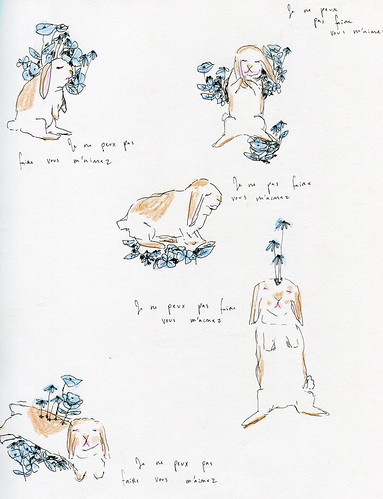 Je ne peux
pas faire
vous m'aimez
Je ne peux pas
faire vous m'aimez
Je ne pas faire
vous m'aimez
Je ne peux pas faire
vous m'aimez
Je ne peux pas
faire vous m'aimez